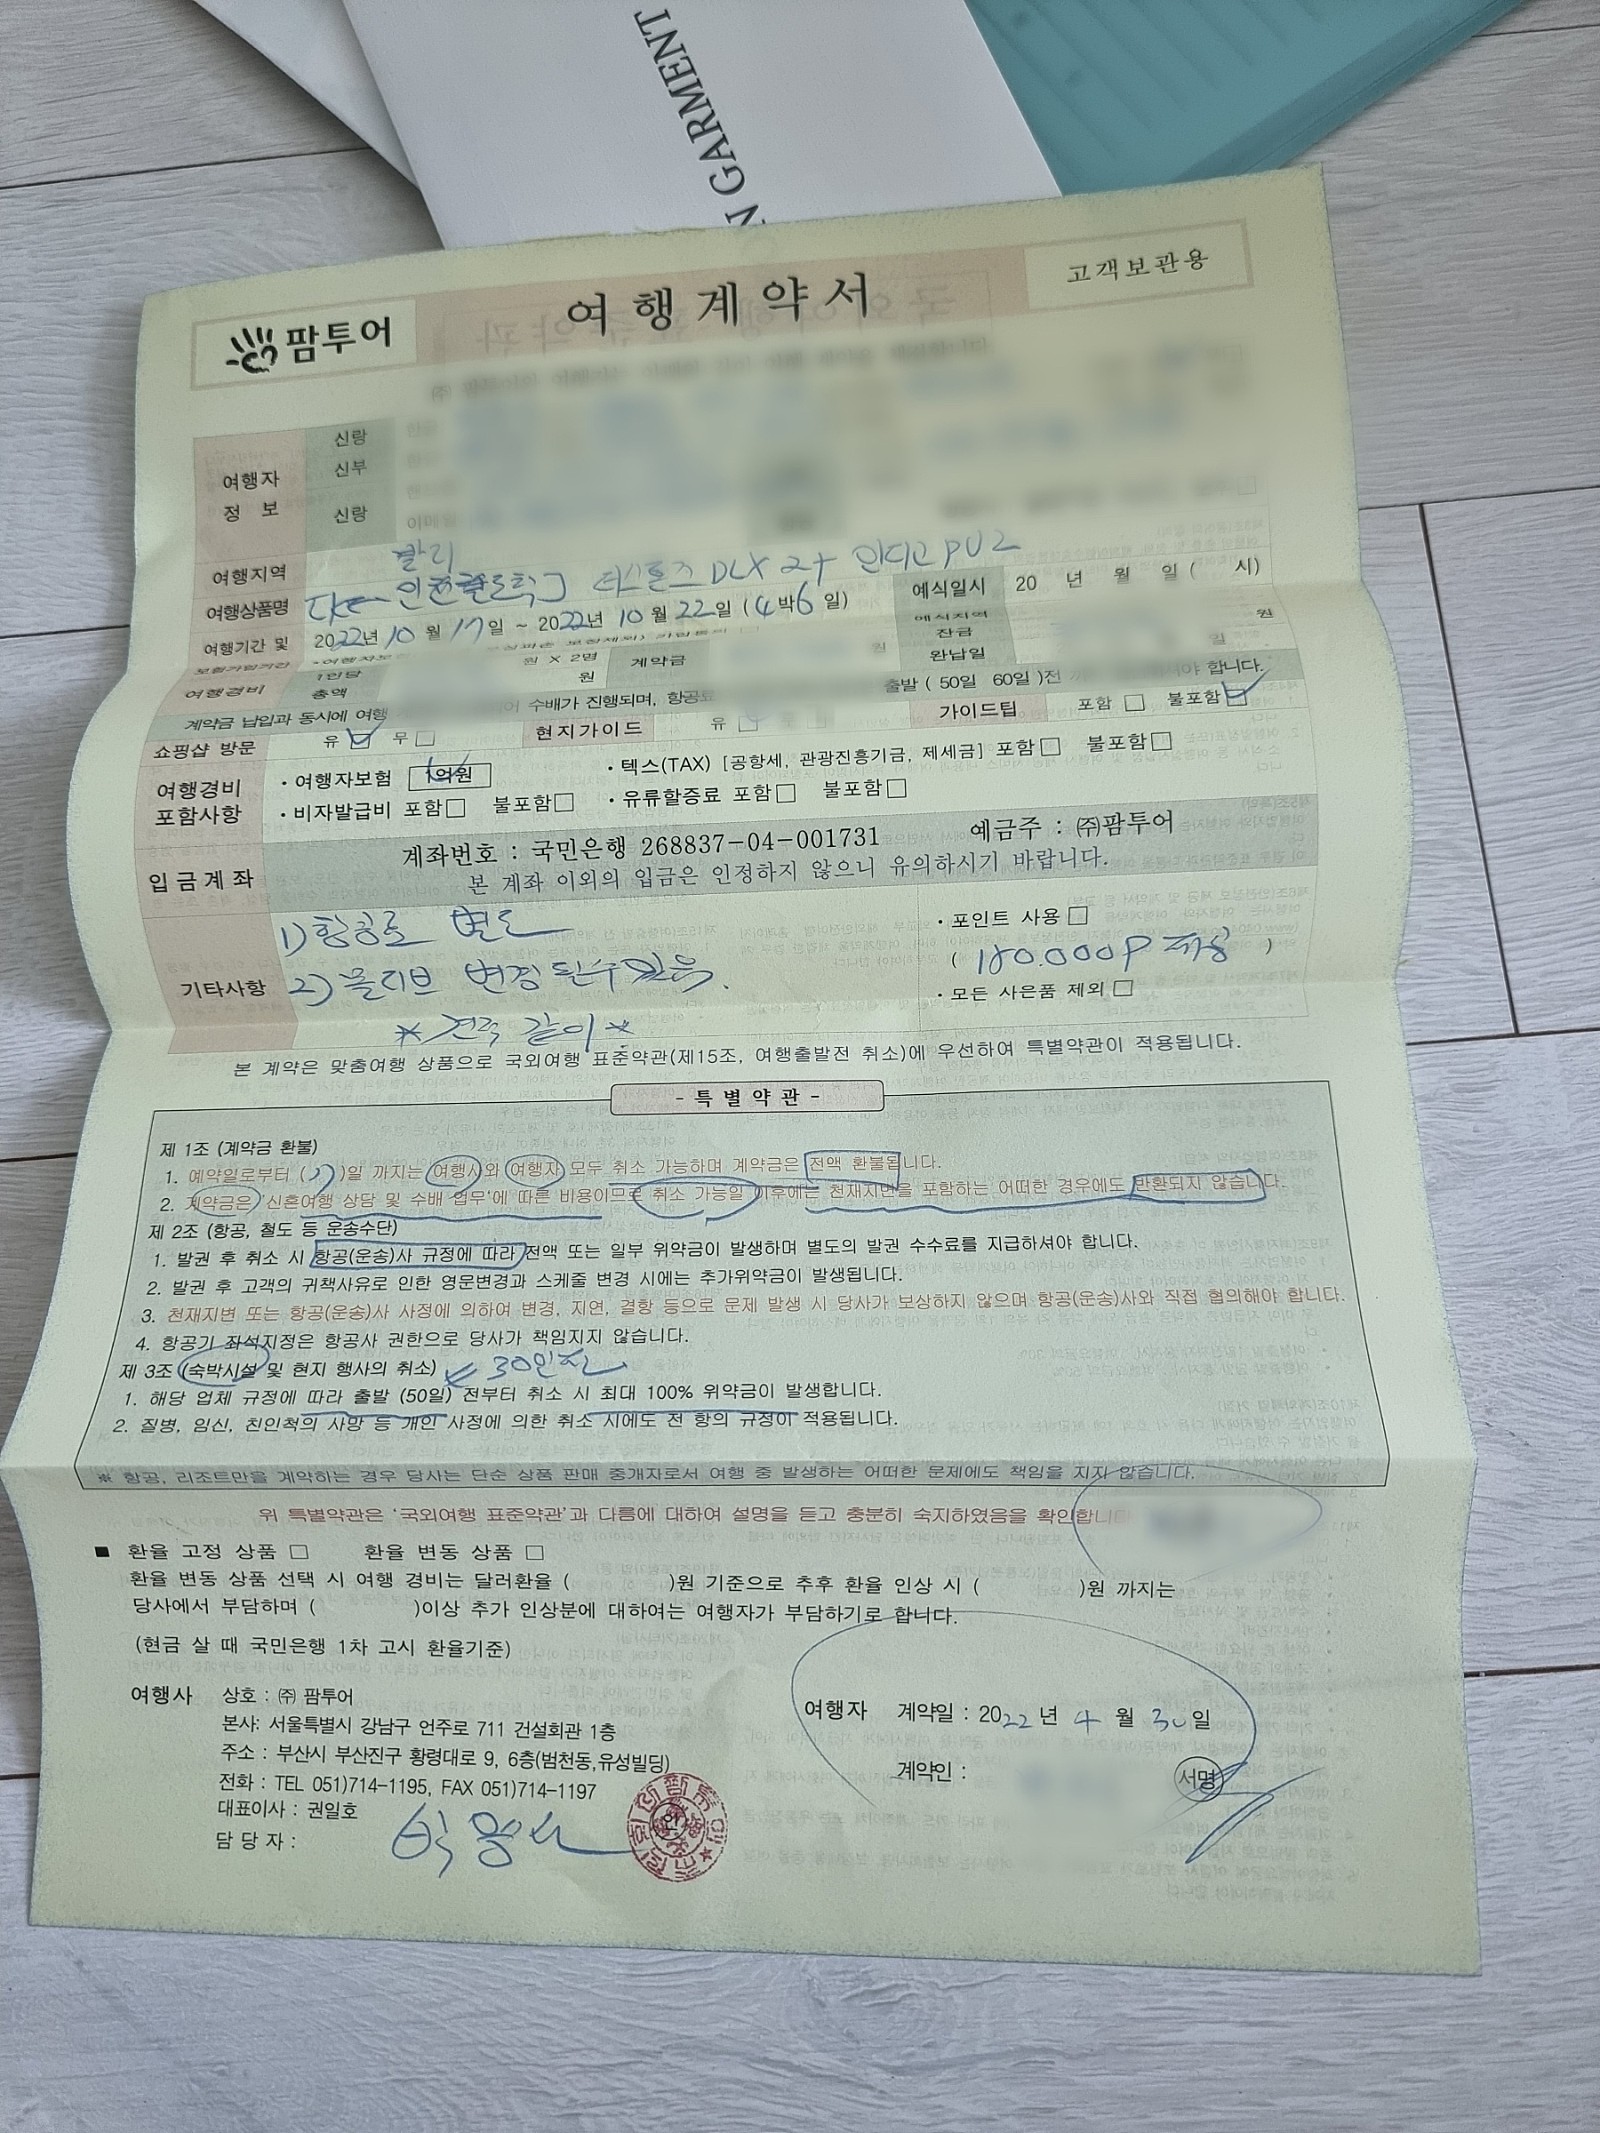 N GARMENT
팜투어
여행계약서
고객보관용
여행자
정 보
신랑
신부
신랑
여행지역
발리
여행상품명
인천출도착 DLX 2+ 인디고 PU2
예식일시 20 년 월 일 ( 시)
여행기간 및 2022년 10월 17일 ~ 2022년 10월 22일 (4박6일)
예식지역
보험가입기간
여행경비
1인당 원 X 2명
총액 원
계약금 원
잔금 원
완납일 일
계약금 납입과 동시에 여행 수배가 진행되며, 항공료 출발 ( 50일 60일 )전 야 합니다.
쇼핑샵 방문 유 무 현지가이드 유 가이드팁 포함 불포함
여행경비
포함사항
・여행자보험 1억원 ・텍스(TAX) [공항세, 관광진흥기금, 제세금] 포함 불포함
・비자발급비 포함 불포함 ・유류할증료 포함 불포함
입금계좌
계좌번호 : 국민은행 268837-04-001731 예금주 : ㈜팜투어
본 계좌 이외의 입금은 인정하지 않으니 유의하시기 바랍니다.
기타사항
1) 항공료 별도
2) 풀리브 변경 될수 있음.
* 견적 같이 *
・포인트 사용
( 180.000P 제공 )
・모든 사은품 제외
본 계약은 맞춤여행 상품으로 국외여행 표준약관(제15조, 여행출발전 취소)에 우선하여 특별약관이 적용됩니다.
- 특별약관 -
제 1조 (계약금 환불)
1. 예약일로부터 ( )일 까지는 여행사와 여행자 모두 취소 가능하며 계약금은 전액 환불됩니다.
2. 계약금은 '신혼여행 상담 및 수배 업무'에 따른 비용이므로 취소 가능일 이후에는 천재지변을 포함하는 어떠한 경우에도 반환되지 않습니다.
제 2조 (항공, 철도 등 운송수단)
1. 발권 후 취소 시 항공(운송)사 규정에 따라 전액 또는 일부 위약금이 발생하며 별도의 발권 수수료를 지급하셔야 합니다.
2. 발권 후 고객의 귀책사유로 인한 영문변경과 스케줄 변경 시에는 추가위약금이 발생됩니다.
3. 천재지변 또는 항공(운송)사 사정에 의하여 변경, 지연, 결항 등으로 문제 발생 시 당사가 보상하지 않으며 항공(운송)사와 직접 협의해야 합니다.
4. 항공기 좌석지정은 항공사 권한으로 당사가 책임지지 않습니다.
제 3조 (숙박시설 및 현지 행사의 취소) 30일전
1. 해당 업체 규정에 따라 출발 (50일) 전부터 취소 시 최대 100% 위약금이 발생합니다.
2. 질병, 임신, 친인척의 사망 등 개인 사정에 의한 취소 시에도 전 항의 규정이 적용됩니다.
※ 항공, 리조트만을 계약하는 경우 당사는 단순 상품 판매 중개자로서 여행 중 발생하는 어떠한 문제에도 책임을 지지 않습니다.
위 특별약관은 '국외여행 표준약관'과 다름에 대하여 설명을 듣고 충분히 숙지하였음을 확인합니다
■ 환율 고정 상품 □ 환율 변동 상품 □
환율 변동 상품 선택 시 여행 경비는 달러환율 ( )원 기준으로 추후 환율 인상 시 ( )원 까지는
당사에서 부담하며 ( )이상 추가 인상분에 대하여는 여행자가 부담하기로 합니다.
(현금 살 때 국민은행 1차 고시 환율기준)
여행사 상호 : ㈜ 팜투어
본사: 서울특별시 강남구 언주로 711 건설회관 1층
주소 : 부산시 부산진구 황령대로 9, 6층(범천동,유성빌딩)
전화 : TEL 051)714-1195, FAX 051)714-1197
대표이사 : 권일호
담 당 자 :
인
여행자 계약일 : 2022년 4월 30일
계약인 : 서명